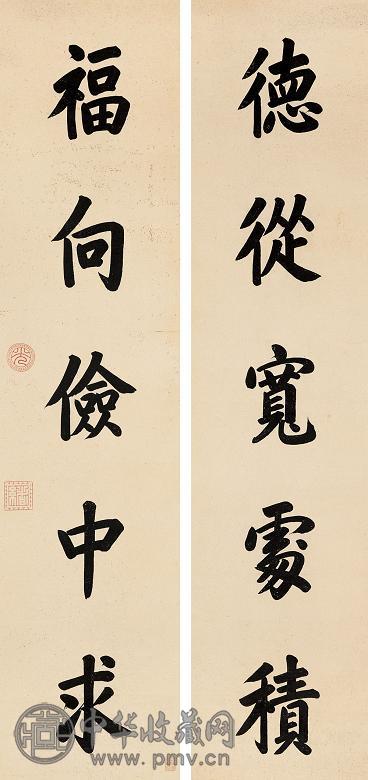 德從寬處積
福向儉中求
中华收藏网
www.pmv.cn